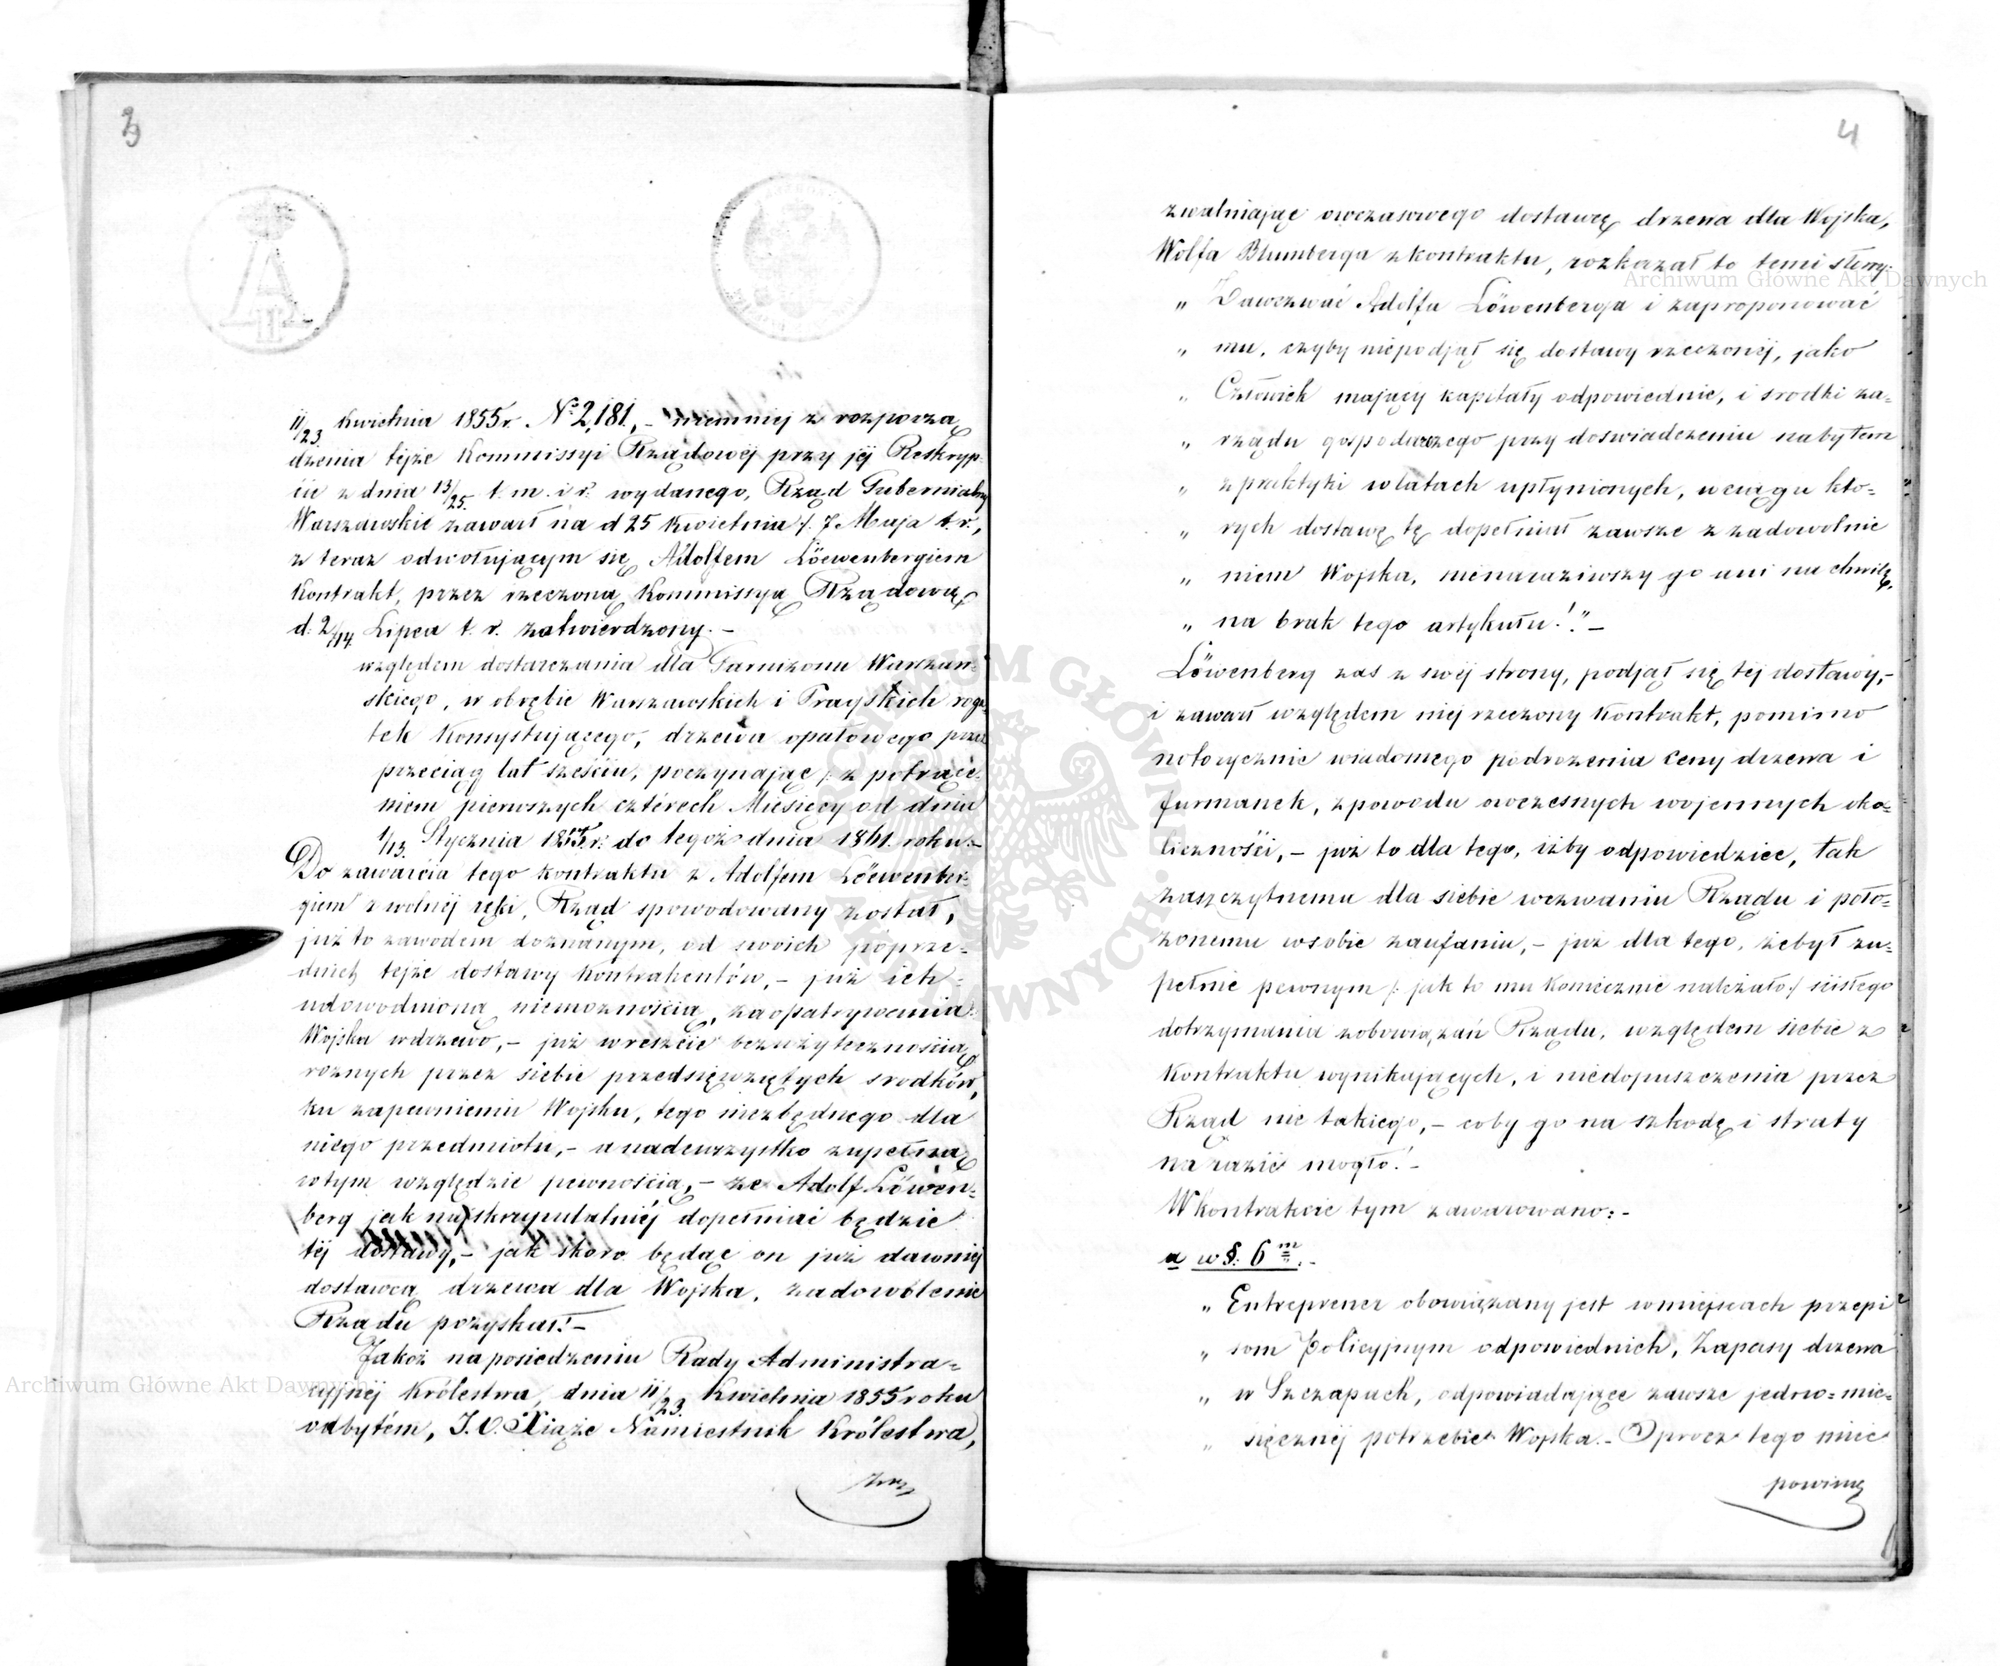 3
11/23. Kwietnia 1855 r. No 2,181, – niemniej z rozporzą
dzenia tejże Kommissyi Rządowéj przy jéj Reskryp-
cie z dnia 13/25. t. m. i r. wydanego, Rząd Gubernialny
Warszawski zawarł na d 25 Kwietnia /. 7 Maja t. r.,
z teraz odwołującym się Adolfem Löewenbergiem
Kontrakt, przez rzeczoną Kommissyą Rządową
d. 2/14. Lipca t. r. zatwierdzony. –
względem dostarczania dla Garnizonu Warszaw-
skiego, w obrębie Warszawskich i Pragskich roga-
tek Konsystującego, drzewa opałowego przez
przeciąg lat sześciu, poczynając /: z potrące-
niem pierwszych cztérech Miesięcy od dnia
1/13. Stycznia 1855 r. do tegoż dnia 1861. roku. –
Do zawarcia tego kontraktu z Adolfem Löewenber-
giem z wolnéj ręki, Rząd spowodowany został,
już to zawodem doznanym, od swoich poprze-
dnich tejże dostawy Kontrahentów, – już ich
udowodnioną niemożnością, zaopatrywania
Wojska w drzewo, – już wreszcie bezużytecznością
rożnych przez siebie przedsięwziętych srodków,
ku zapewnieniu Wojsku, tego niezbędnego dla
niego przedmiotu, – a nadewszystko zupełną
w tym względzie pewnością, – że Adolf Löwen-
berg jak najskrupulatniéj dopełniać będzie
téj dostawy, – jak skoro będąc on już dawniéj
dostawcą drzewa dla Wojska, zadowólenie
Rządu pozyskał! –
Jakoż na posiedzeniu Rady Administra-
cyjnéj Królestwa, dnia 11/23. Kwietnia 1855 roku
odbytém, J. O. Xiąże Namiestnik Królestwa,
4
zwalniając owczasowego dostawcę drzewa dla Wojska,
Wolfa Blumberga z kontraktu, rozkazał to temi słowy:
„ Zawezwać Adolfa Löwenberga i zaproponować
„ mu, czyby niepodjął się dostawy rzeczonéj, jako
„ Człowiek mający kapitały odpowiednie, i srodki za-
„ rządu gospodarczego przy doswiadczeniu nabytem
„ z praktyki w latach upłynionych, w ciągu kto-
„ rych dostawę tę dopełniał zawsze z zadowolnie
„ niem Wojska, nienaraziwszy go ani na chwilę,
„ na brak tego artykułu!” –
Löwenberg zas z swéj strony, podjął się téj dostawy, –
i zawarł względem niéj rzeczony Kontrakt, pomimo
notorycznie wiadomego podrożenia Ceny drzewa i
furmanek, z powodu owczesnych wojennych oko-
liczności, – już to dla tego, iżby odpowiedziec, tak
zaszczytnemu dla siebie wezwaniu Rządu i poło-
żonemu w sobie zaufaniu, – już dla tego, że był zu-
pełnie pewnym /: jak to mu koniecznie należało :/ scisłego
dotrzymania zobowiązań Rządu, względem siebie z
Kontraktu wynikających, i niedopuszczenia przez
Rząd nic takiego, – coby go na szkodę i straty
narazić mogło! –
W kontrakcie tym zawarowano: –
a w §. 6m. –
„ Entreprener obowiązany jest w miejscach przepi
„ som Policyjnym odpowiednich, Zapasy drzewa
„ w Szczapach, odpowiadające zawsze jedno-mie-
„ sięcznéj potrzebie Wojska. – Oprocz tego mieć
powinę
Archiwum Główne Akt Dawnych
Archiwum Główne Akt Dawnych
ARCHIWUM GŁÓWNE AKT DAWNYCH